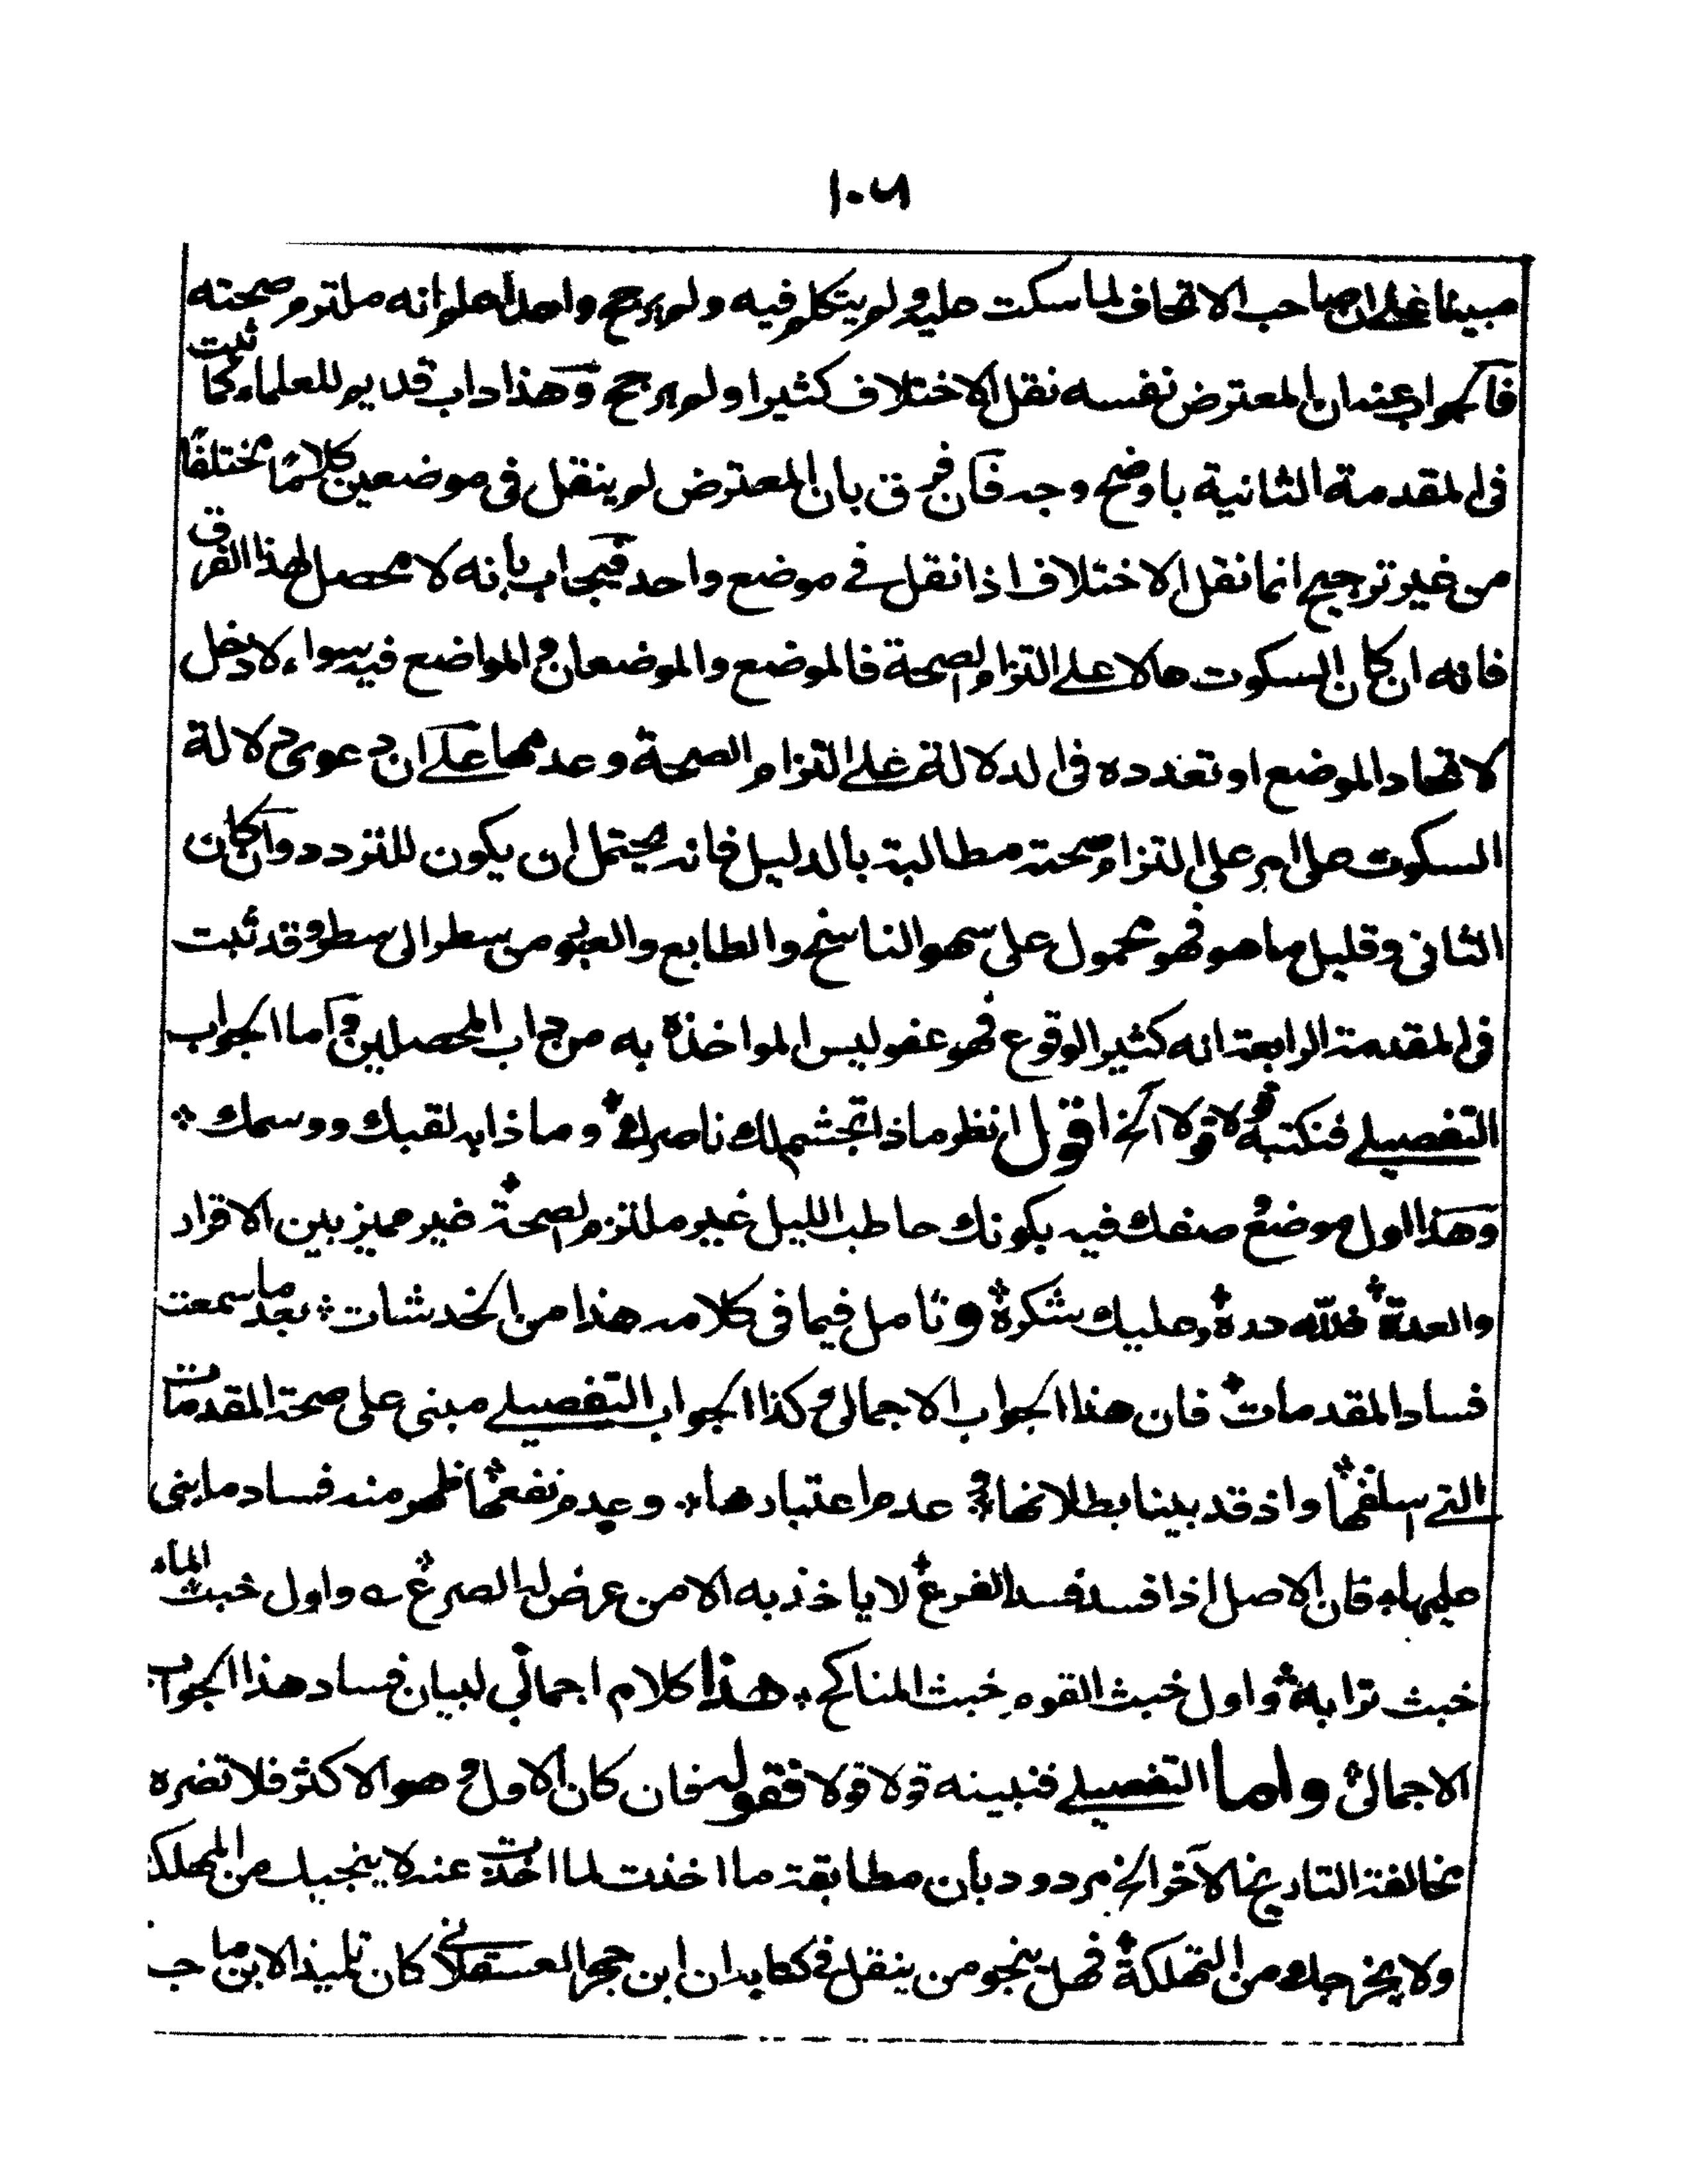 ١٠٦
مبينا على ان صاحب الاتحاف لما سكت عليه ولم يتكلم فيه ولم يرجح واحدا علم انه ملتزم صحته
فالجواب عنه ان المعترض نفسه نقل الاختلاف كثيرا ولم يرجح وهذا داب قديم للعلماء كما ثبت
فى المقدمة الثانية باوضح وجه فان فرق بان المعترض لم ينقل فى موضعين كلاما مختلفا
من غير ترجيح انما نقل الاختلاف اذا نقل فى موضع واحد فيجاب بانه لا محصل لهذا الفرق
فانه ان كان السكوت دالا على التزام الصحة فالموضع والموضعان والمواضع فيه سواء لا دخل
لاتحاد الموضع او تعدده فى الدلالة على التزام الصحة وعدمها على ان دعوى دلالة
السكوت على امر على التزام صحته مطالبة بالدليل فانه يحتمل ان يكون للتردد وان كان
الثانى وقليل ما هو فهو محمول على سهو الناسخ والطابع والعبور من سطر الى سطر وقد ثبت
فى المقدمة الرابعة انه كثير الوقوع فهو عفو ليس المواخذة به من داب المحصلين واما الجواب
التفصيلى فنكتبه قولا قولا الخ اقول انظر ماذا تجشم لك ناصرك وما ذا به لقبك ووسمك
وهذا اول موضع وصفك فيه بكونك حاطب الليل غير ملتزم الصحة غير مميز بين الاقرار
والعدة فلله دره وعليك شكره وتامل فيما فى كلامه هذا من الخدشات بعد ما سمعت
فساد المقدمات فان هذا الجواب الاجمالى وكذا الجواب التفصيلى مبنى على صحة المقدمات
التى اسلفها واذ قد بينا بطلانها وعدم اعتبارها وعدم نفعها ظهر منه فساد ما بنى
عليها فان الاصل اذا فسد فسد الفرع لا ياخذ به الا من عرض له الصرع واول خبث الماء
خبث ترابه واول خبث القوم خبث المناكح هذا كلام اجمالى لبيان فساد هذا الجواب
الاجمالى واما التفصيلى فنبينه قولا قولا فقوله فان كان الاول وهو الاكثر فلا تضره
مخالفة التاريخ الآخر الخ مردود بان مطابقة ما اخذت لما اخذت عنه لا ينجيك من المهلكة
ولا يخرجك من التهلكة فهل ينجو من ينقل فى كتابه ان ابن حجر العسقلانى كان تلميذا لابن ماجه